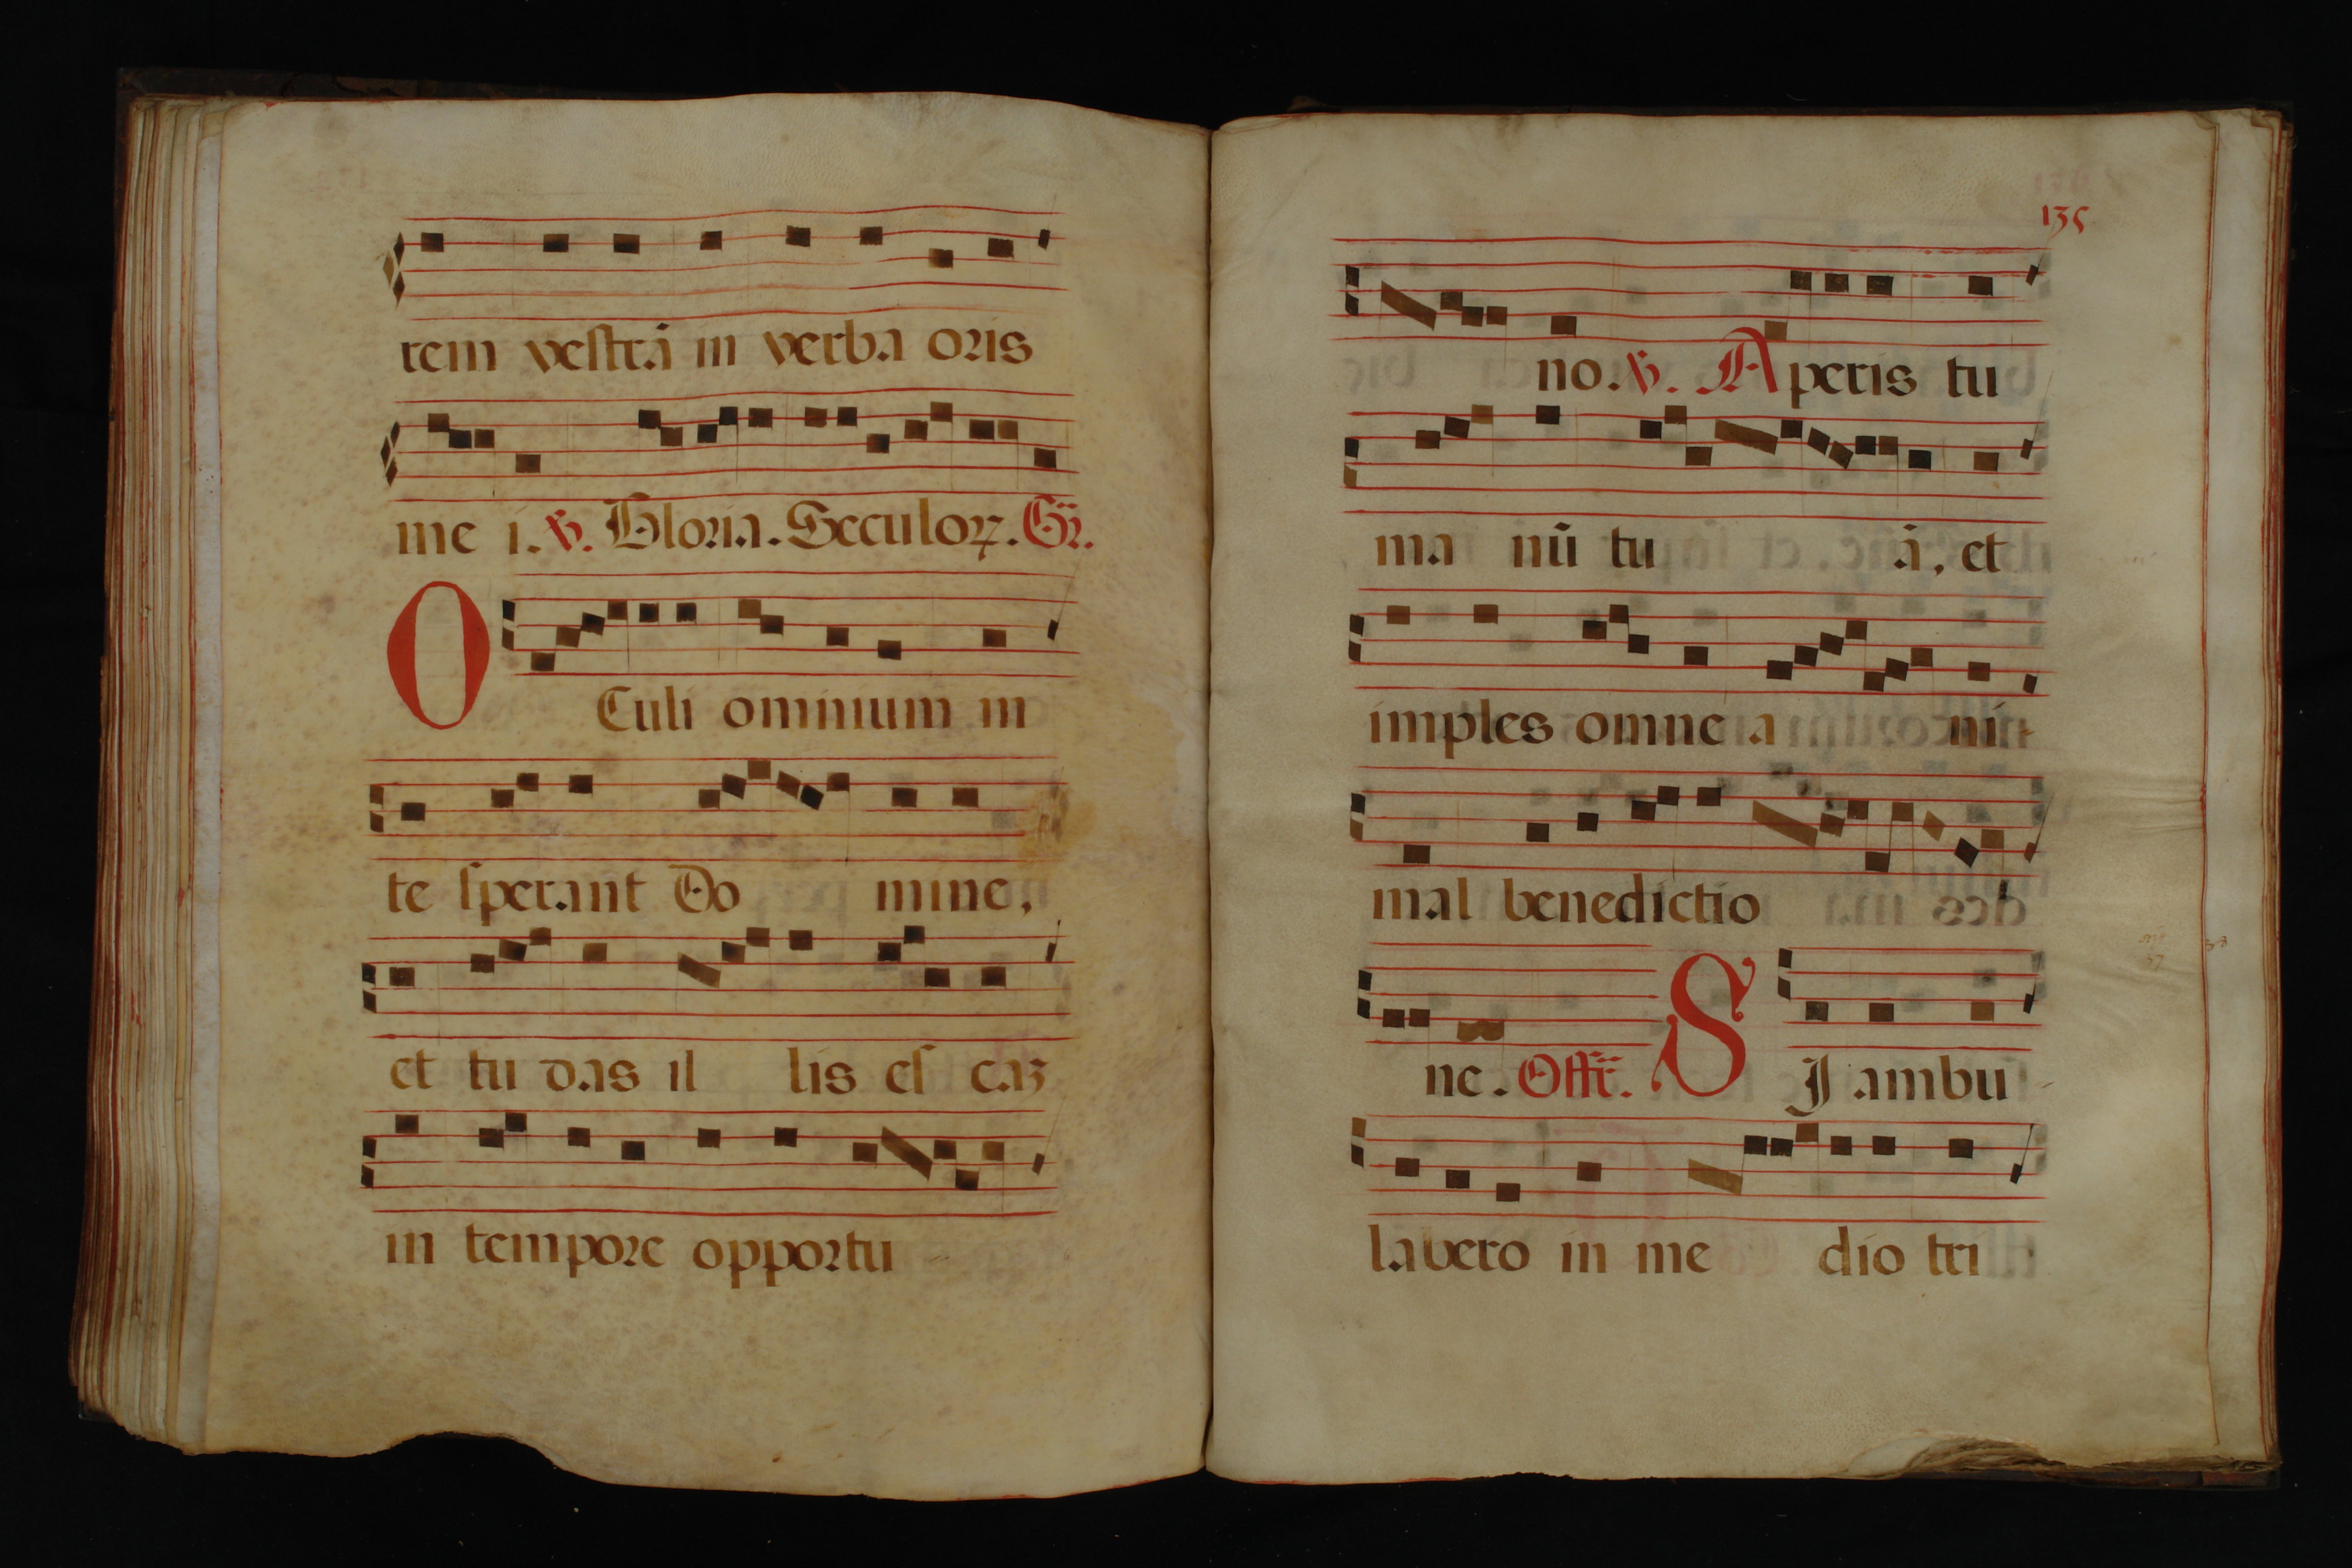 rem vestrā in verba oris
me i. ℣. Gloria. Seculoꝝ. Gr̄.
O Culi omnium in
te sperant Do mine,
et tu das il lis es caз
in tempore opportu
135
no. ℣. Aperis tu
ma nū tu ā, et
imples omne a ni-
mal benedictio
ne. Offr̄. S I ambu
lavero in me dio tri